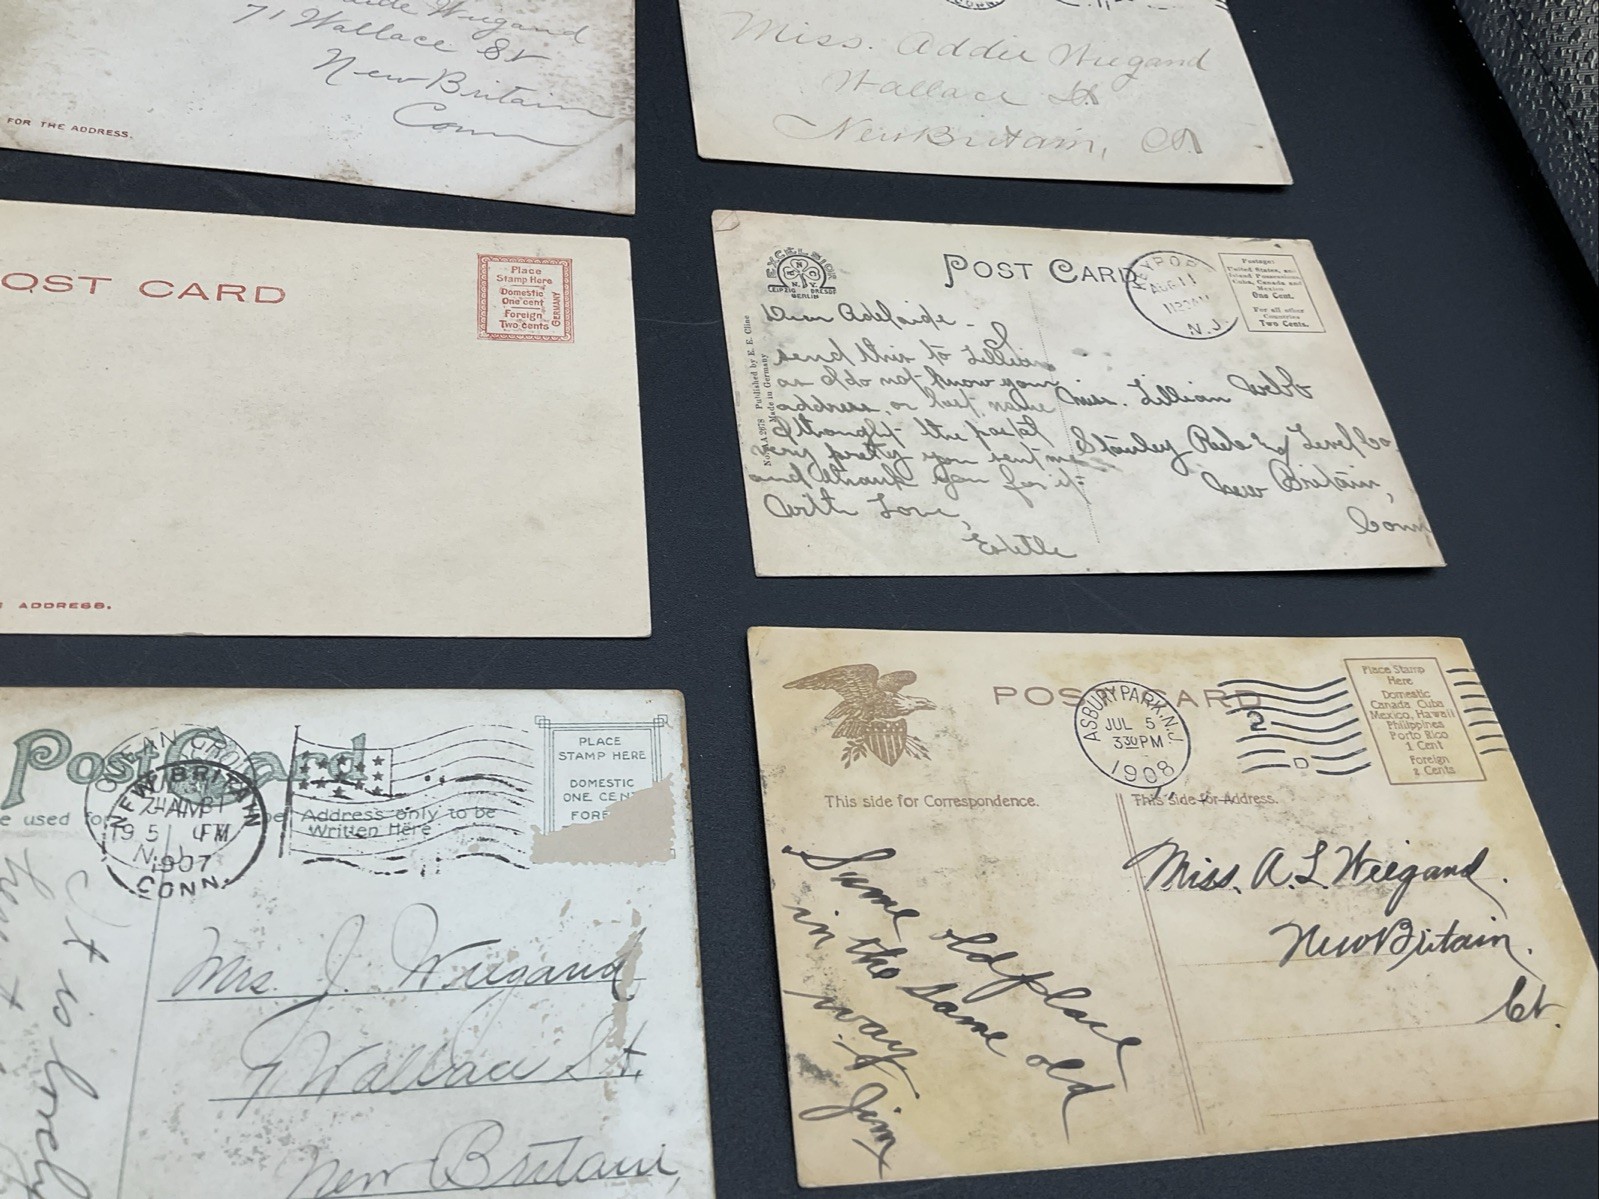 Wiegand
71 Wallace St
New Britain
Conn
FOR THE ADDRESS.
Miss. Addie Wiegand
Wallace St
New Britain, Ct
OST CARD
Place
Stamp Here
Domestic
One cent
Foreign
Two cents
GERMANY
ADDRESS.
EXCELSIOR
LEIPZIG DRESDEN
BERLIN
POST CARD
KEYPORT
AUG 11
N.J.
Postage:
United States, and
Island Possessions
Cuba, Canada and
Mexico
One Cent.
For all other
Countries
Two Cents.
Published by E. E. Cline
Made in Germany
Dear Adelaide -
send this to Lillian
as I do not know your
address, or last name
I thought the postal
very pretty you sent me
and thank you for it
With Love,
Estelle
Miss. Lillian Webb
Stanley Rule & Level Co.
New Britain,
Conn
Post Card
NEW BRITAIN
1907
CONN.
e used for
Address only to be
Written Here
PLACE
STAMP HERE
DOMESTIC
ONE CENT
FORE
It is lovely
Mrs. J. Wiegand
71 Wallace St,
New Britain,
POST CARD
ASBURY PARK, N.J.
JUL 5
330 PM
1908
2
D
Place Stamp
Here
Domestic
Canada Cuba
Mexico, Hawaii
Philippines
Porto Rico
1 Cent
Foreign
2 Cents
This side for Correspondence.
This side for Address.
Same old place
in the same old
way
Jim
Miss. A. L. Wiegand.
New Britain.
Ct.